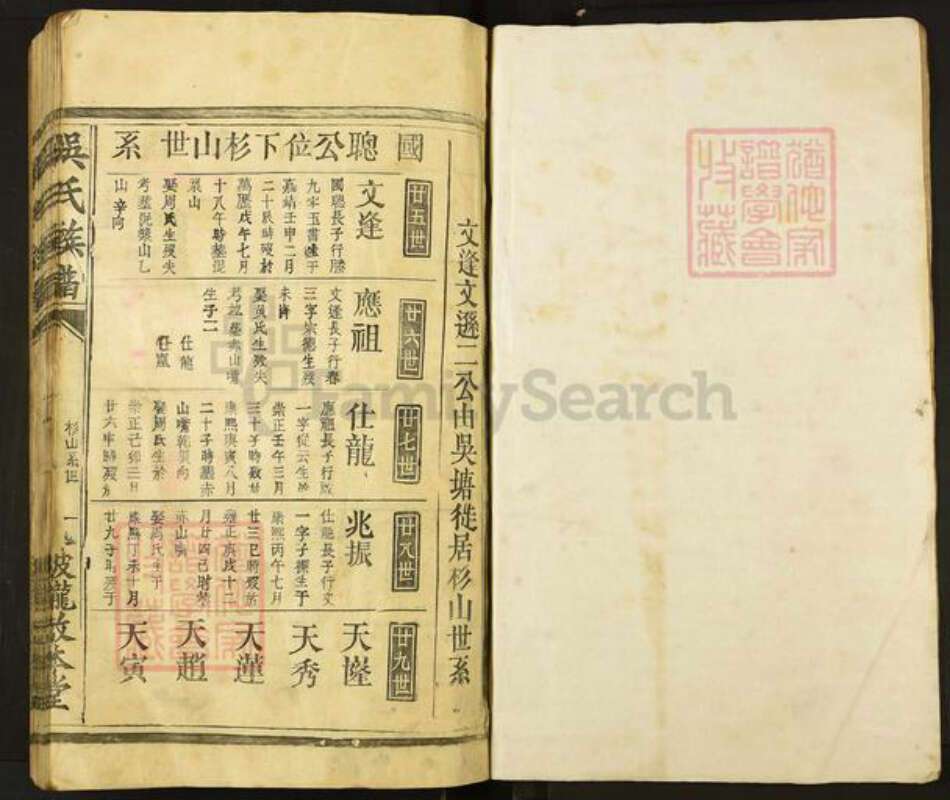 猶他家
譜學會
收藏
文逢文遜二公由吳塘徙居杉山世系
國聰公位下杉山世系
廿五世
文逢
國聰長子行勝
九字玉書生于
嘉靖壬申二月
二十辰時歿於
萬歷戊午七月
十八午時墓
山
娶周氏生歿失
考墓 山乙
山辛向
廿六世
應祖
文逢長子行春
三字宗德生歿
未詳
娶黃氏生歿失
考 山嘴
生子二
仕龍
仕鳳
廿七世
仕龍
應祖長子行
一字從云生於
崇正壬午三月
三十子時歿於
康熙庚寅八月
二十子時墓赤
山嘴乾巽向
娶周氏生於
崇正己卯三月
廿六中時歿於
廿八世
兆振
仕龍長子行文
一字子振生于
康熙丙午七月
廿三巳時歿於
雍正庚戌十二
月廿四己時葬
赤山嘴
娶周氏生于
康熙丁未十月
廿九子時歿于
廿九世
天
天秀
天蓮
天趙
天寅
吳氏族譜
杉山系世
一
坡龍敦本堂
FamilySearch